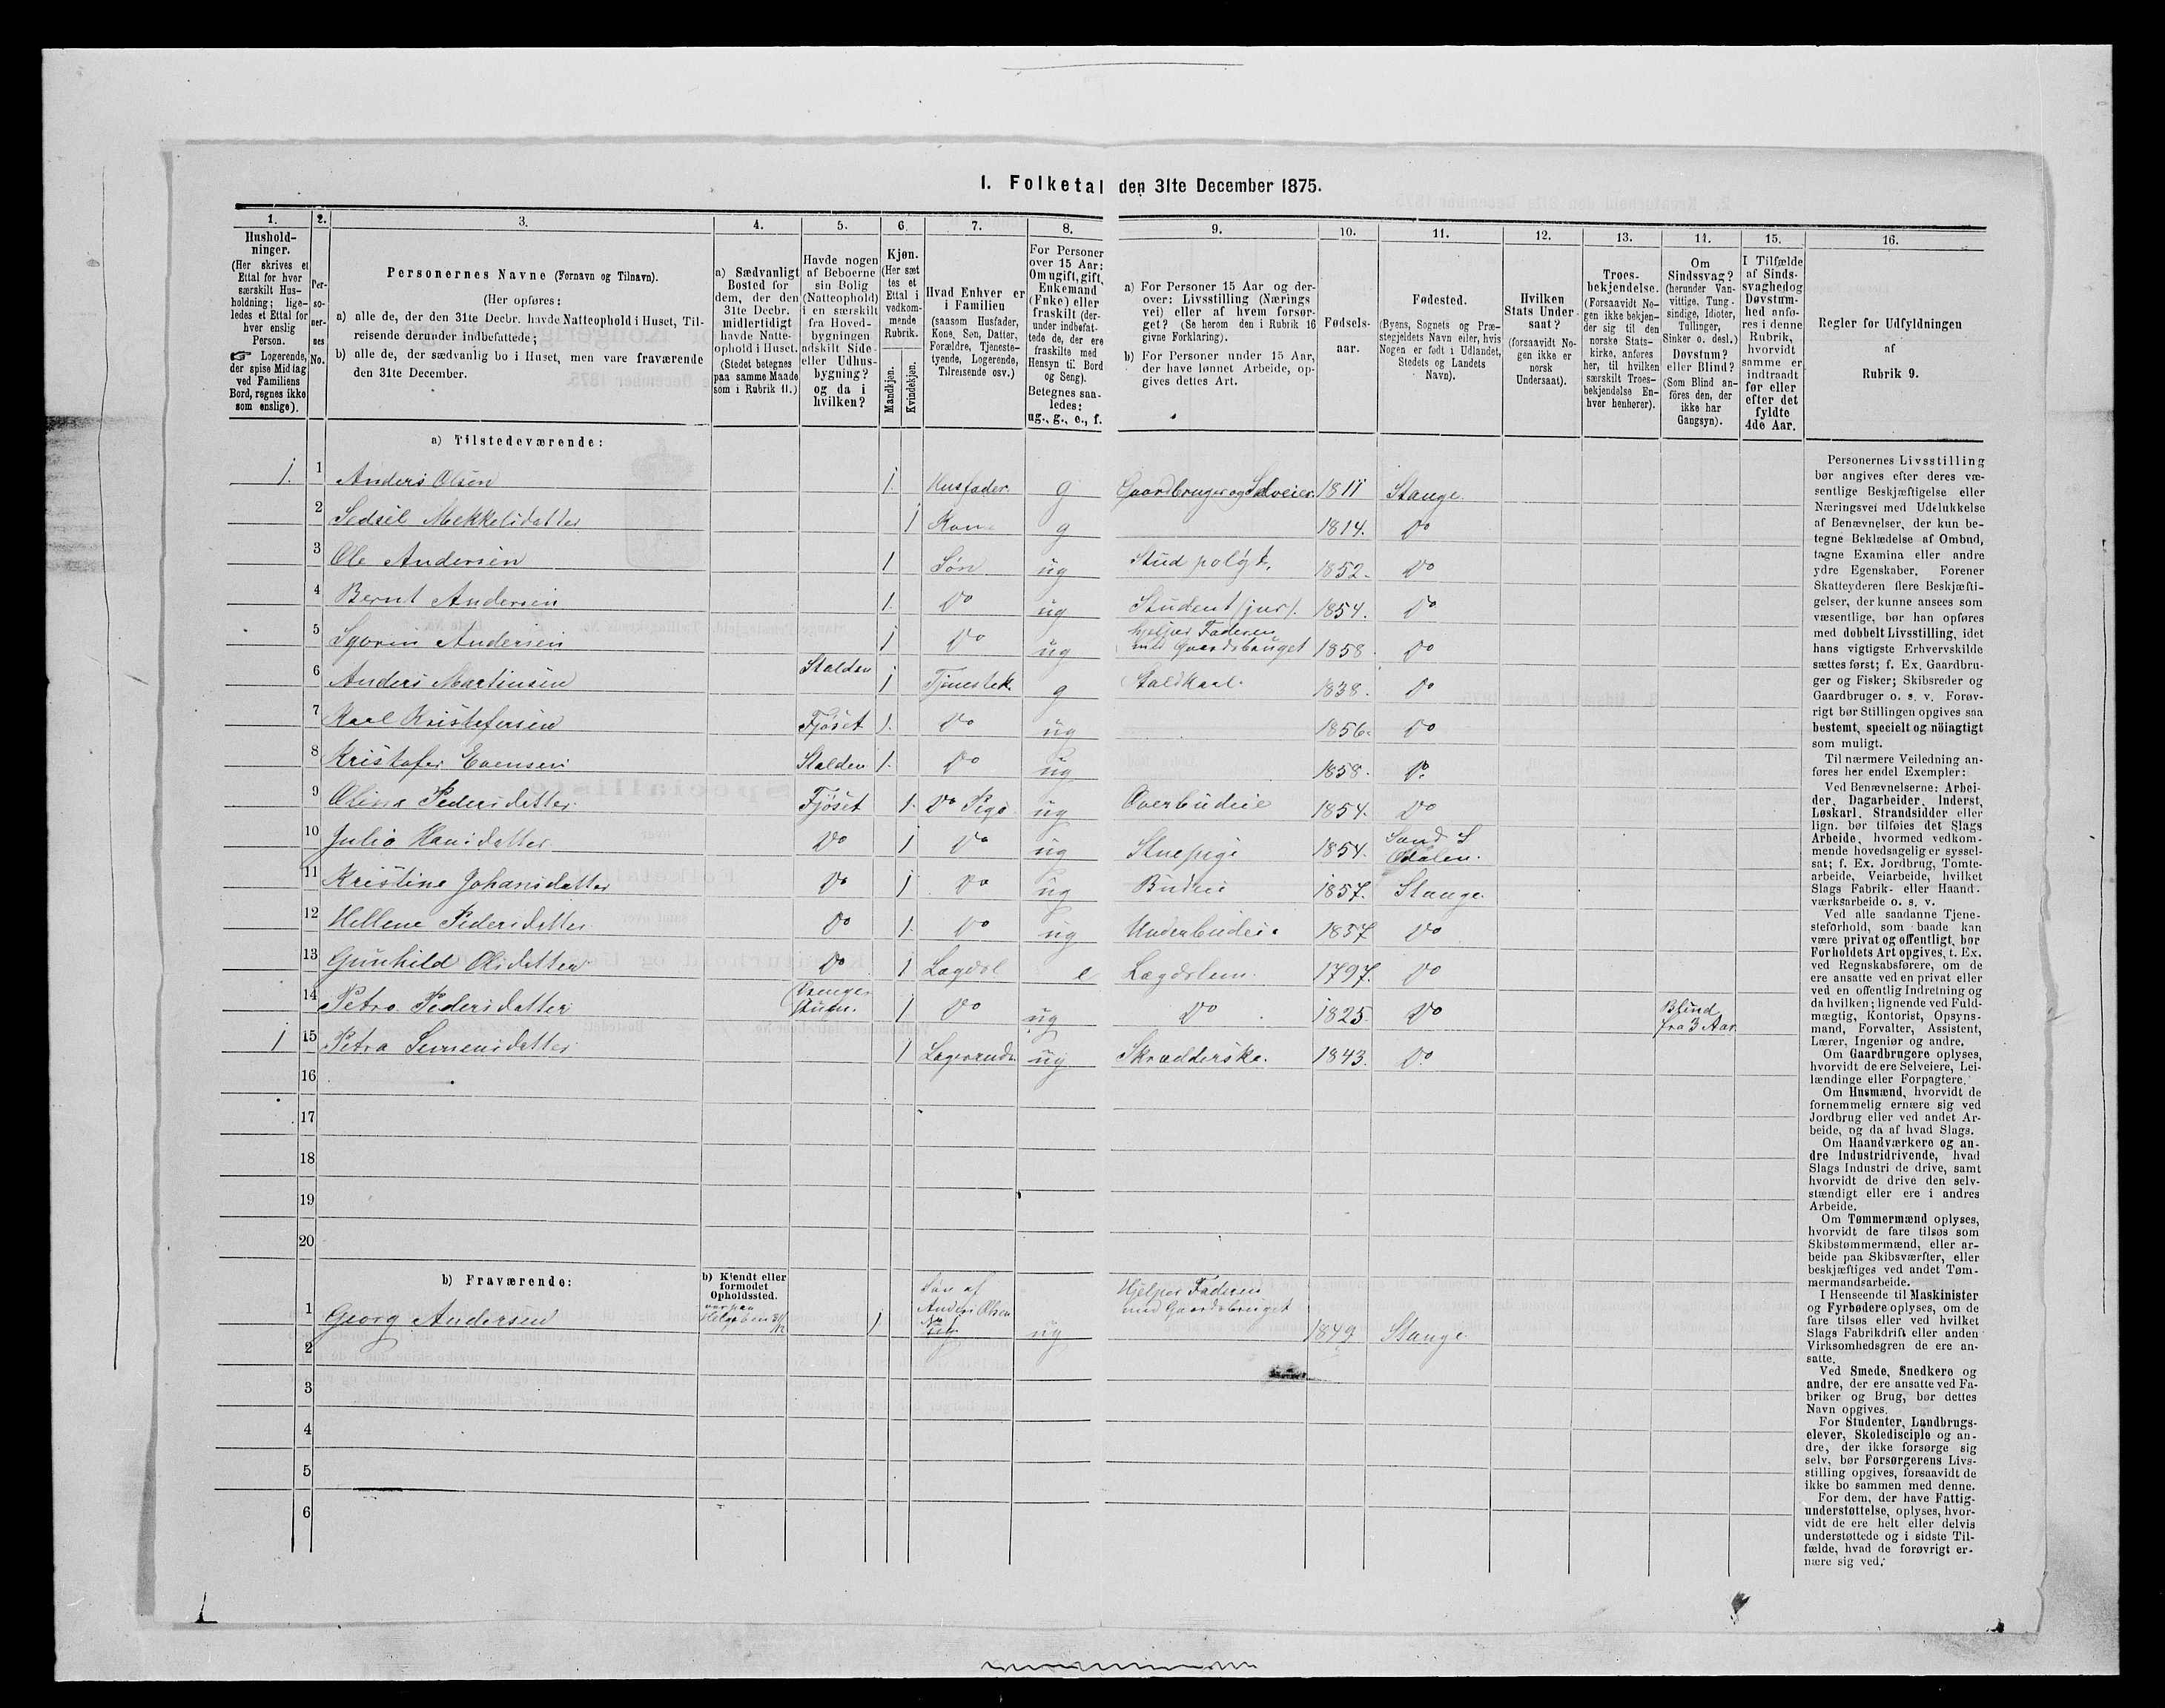 I. Folketal den 31te December 1875.
1. 2. 3. 4. 5. 6. 7. 8. 9. 10. 11. 12. 13. 14. 15. 16.
Hushold-
ninger.
(Her skrives et
Ettal for hver
særskilt Hus-
holdning; lige-
ledes et Ettal for
hver enslig
Person.
☞ Logerende,
der spise Middag
ved Familiens
Bord, regnes ikke
som enslige).
Per-
so-
ner-
nes
No.
Personernes Navne (Fornavn og Tilnavn).
(Her opføres:
a) alle de, der den 31te Decbr. havde Natteophold i Huset, Til-
reisende derunder indbefattede;
b) alle de, der sædvanlig bo i Huset, men vare fraværende
den 31te December.
a) Sædvanligt
Bosted for
dem, der den
31te Decbr.
midlertidigt
havde Natte-
ophold i Huset.
(Stedet betegnes
paa samme Maade
som i Rubrik 11.)
Havde nogen
af Beboerne
sin Bolig
(Natteophold)
i en særskilt
fra Hoved-
bygningen
adskilt Side-
eller Udhus-
bygning?
og da i
hvilken?
Kjøn.
(Her sæt
tes et
Ettal i
vedkom-
mende
Rubrik.
Mandkjøn.
Kvindekjøn.
Hvad Enhver er
i Familien
(saasom Husfader,
Kone, Søn, Datter,
Forældre, Tjeneste-
tyende, Logerende,
Tilreisende osv.)
For Personer
over 15 Aar:
Om ugift, gift,
Enkemand
(Enke) eller
fraskilt (der-
under indbefat-
tede de, der ere
fraskilte med
Hensyn til Bord
og Seng).
Betegnes saa-
ledes:
ug., g., e., f.
a) For Personer 15 Aar og der-
over: Livsstilling (Nærings
vei) eller af hvem forsør-
get? (Se herom den i Rubrik 16
givne Forklaring).
b) For Personer under 15 Aar,
der have lønnet Arbeide, op-
gives dettes Art.
Fødsels-
aar.
Fødested.
(Byens, Sognets og Præ-
stegjeldets Navn eller, hvis
Nogen er født i Udlandet,
Stedets og Landets
Navn).
Hvilken
Stats Under-
saat?
(forsaavidt No-
gen ikke er
norsk
Undersaat).
Troes-
bekjendelse.
(Forsaavidt No-
gen ikke bekjen-
der sig til den
norske Stats-
kirke, anføres
her, til hvilken
særskilt Troes-
bekjendelse En-
hver henhører).
Om
Sindssvag?
(herunder Van-
vittige, Tung-
sindige, Idioter,
Tullinger,
Sinker o. desl.)
Døvstum?
eller Blind?
(Som Blind an-
føres den, der
ikke har
Gangsyn).
I Tilfælde
af Sinds-
svaghed og
Døvstum-
hed anfø-
res i denne
Rubrik,
hvorvidt
samme er
indtraadt
før eller
efter det
fyldte
4de Aar.
Regler for Udfyldningen
af
Rubrik 9.
a) Tilstedeværende:
1. 1 Anders Olsen 1. Husfader. g Gaardbruger og Selveier. 1811 Stange.
2 Sedsel Mekkelsdatter 1 Kone g 1814. Do
3 Ole Andersen 1 Søn ug Stud polyt. 1852. Do
4 Bernt Andersen 1. Do ug Student (jur). 1854. Do
5 Andersen 1 Do ug hjelper Faderen
med Gaardsbruget 1858. Do
6 Anders Martinsen Stalden 1 Tjenestek. g Staldkarl. 1838. Do
7 Karl Kristofersen Fjøset 1. Do ug 1856. Do
8 Kristofer Evensen Stalden 1. Do ug 1858. Do.
9 Oline Pedersdatter Fjøset 1. Do Pige ug Overbudeie 1854. Do
10 Julia Hansdatter Do 1 Do ug Stuepige 1854. Sand S
Odalen.
11 Kristine Johansdatter Do 1 Do ug Budeie 1857. Stange.
12 Hellene Pedersdatter Do 1. Do ug Underbudeie 1857 Do
13 Gunhild Olsdatter Do 1 Lægdsl. e Lægdslem. 1797. Do
14 Petra Pedersdatter 1 Do ug Do 1825. Do Blind
fra 3 Aar
1 15 Petra Semensdatter 1 Logerende ug Skrædderske. 1843. Do.
16
17
18
19
20
b) Fraværende:
b) Kjendt eller
formodet
Opholdssted.
1 Georg Andersen 1 Søn af
Anders Olsen
No 1 ug Hjelper Faderen
med Gaardsbruget 1849. Stange.
2
3
4
5
6
Personernes Livsstilling
bør angives efter deres væ-
sentlige Beskjæftigelse eller
Næringsvei med Udelukkelse
af Benævnelser, der kun be-
tegne Beklædelse af Ombud,
tagne Examina eller andre
ydre Egenskaber. Forener
Skatteyderen flere Beskjæfti-
gelser, der kunne ansees som
væsentlige, bør han opføres
med dobbelt Livsstilling, idet
hans vigtigste Erhvervskilde
sættes først; f. Ex. Gaardbru-
ger og Fisker; Skibsreder og
Gaardbruger o. s. v. Forøv-
rigt bør Stillingen opgives saa
bestemt, specielt og nöiagtigt
som muligt.
Til nærmere Veiledning an-
føres her endel Exempler:
Ved Benævnelserne: Arbei-
der, Dagarbeider, Inderst,
Løskarl, Strandsidder eller
lign. bør tilføies det Slags
Arbeide, hvormed vedkom-
mende hovedsagelig er syssel-
sat; f. Ex. Jordbrug, Tomte-
arbeide, Veiarbeide, hvilket
Slags Fabrik- eller Haand-
værksarbeide o. s. v.
Ved alle saadanne Tjene-
steforhold, som baade kan
være privat og offentligt, bør
Forholdets Art opgives, t. Ex.
ved Regnskabsførere, om de
ere ansatte ved en privat eller
ved en offentlig Indretning og
da hvilken; lignende ved Fuld-
mægtig, Kontorist, Opsyns-
mand, Forvalter, Assistent,
Lærer, Ingeniør og andre.
Om Gaardbrugere oplyses,
hvorvidt de ere Selveiere, Lei-
lændinge eller Forpagtere.
Om Husmænd, hvorvidt de
fornemmelig ernære sig ved
Jordbrug eller ved andet Ar-
beide, og da af hvad Slags.
Om Haandværkere og an-
dre Industridrivende, hvad
Slags Industri de drive, samt
hvorvidt de drive den selv-
stændigt eller ere i andres
Arbeide.
Om Tømmermænd oplyses,
hvorvidt de fare tilsøs som
Skibstømmermænd, eller ar-
beide paa Skibsværfter, eller
beskjæftiges ved andet Tøm-
mermandsarbeide.
I Henseende til Maskinister
og Fyrbødere oplyses, om de
fare tilsøs eller ved hvilket
Slags Fabrikdrift eller anden
Virksomhedsgren de ere an-
satte.
Ved Smede, Snedkere og
andre, der ere ansatte ved Fa-
briker og Brug, bør dettes
Navn opgives.
For Studenter, Landbrugs-
elever, Skoledisciple og an-
dre, der ikke forsørge sig
selv, bør Forsørgerens Livs-
stilling opgives, forsaavidt de
ikke bo sammen med denne.
For dem, der have Fattig-
understøttelse, oplyses, hvor-
vidt de ere helt eller delvis
understøttede og i sidste Til-
fælde, hvad de forøvrigt er-
nære sig ved.